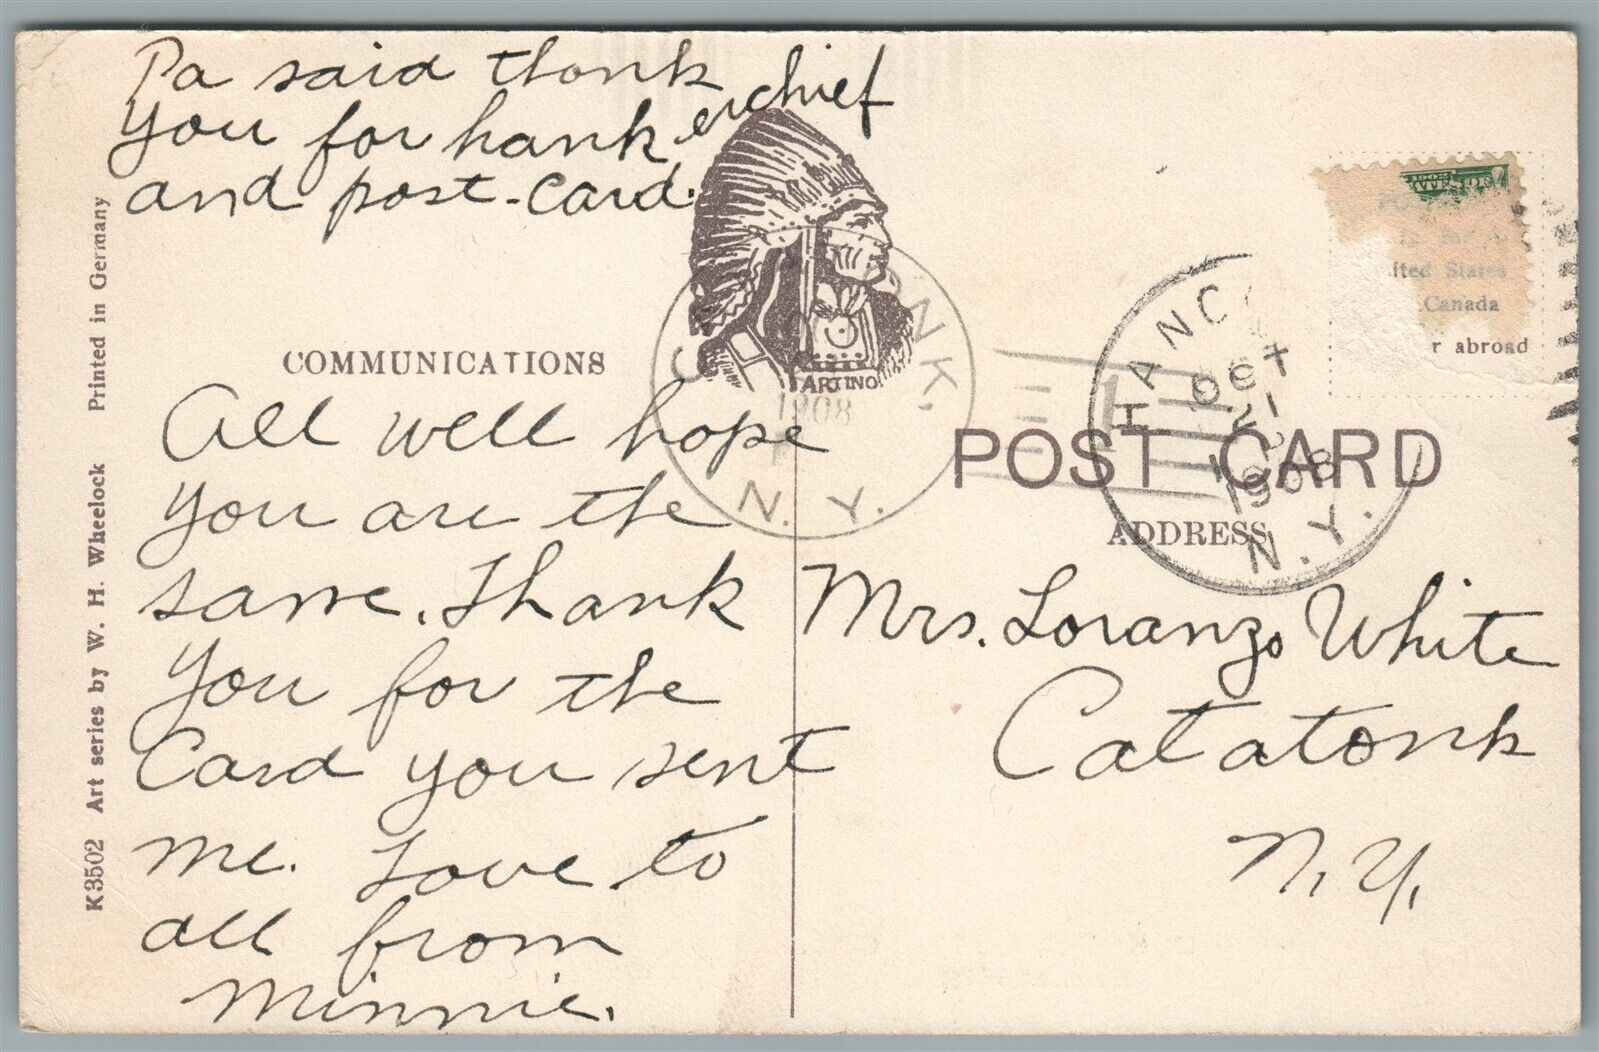 Pa said thonk
You for hankerchief
and post-Card.
COMMUNICATIONS
All well hope
You are the
same. Thank
You for the
Card you sent
me. Love to
all from
Minnie.
K3502 Art series by W. H. Wheelock Printed in Germany
ARTINO
ONK,
1908
N. Y.
HANC
OCT
21
1908
N.Y.
ited States
Canada
r abroad
POST CARD
ADDRESS
Mrs. Loranzo White
Catatonk
N, Y,